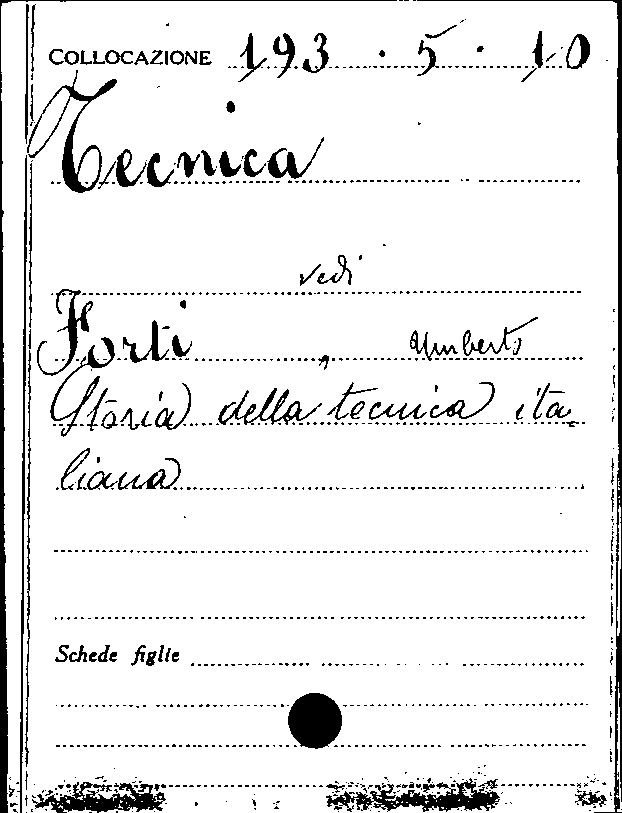 COLLOCAZIONE 193 . 5 . 10
Tecnica
vedi
Forti, Umberto
Storia della tecnica ita-
liana
Schede figlie